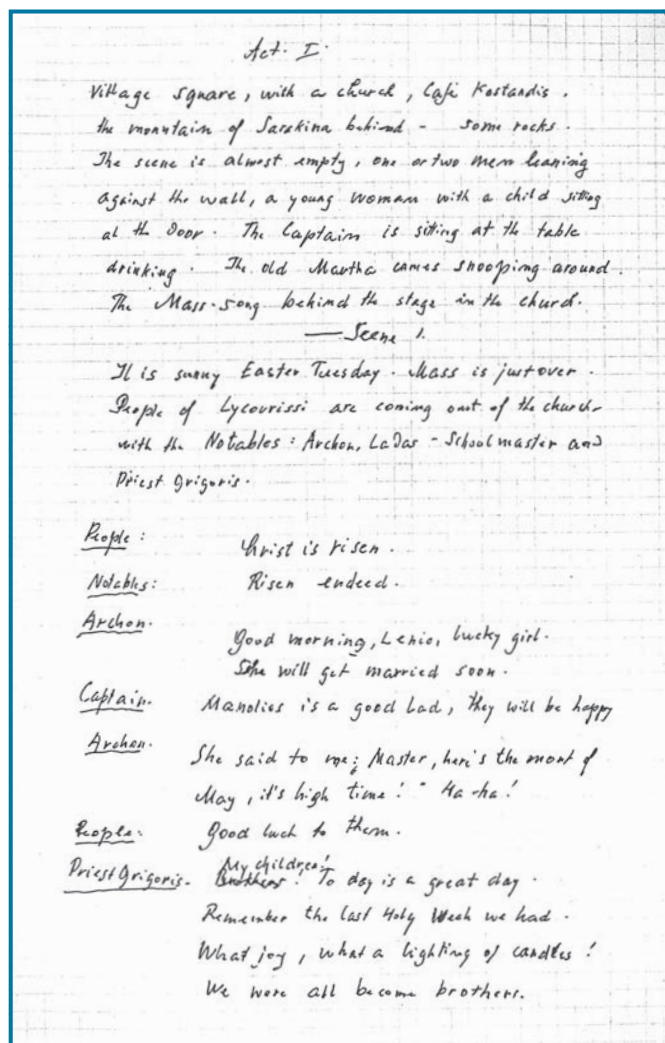 Act. I.
Village square, with a church, Café Kostandis.
the mountain of Sarakina behind - some rocks.
The scene is almost empty, one or two men leaning
against the wall, a young woman with a child sitting
at the door. The Captain is sitting at the table
drinking. The old Martha comes snooping around.
The Mass-song behind the stage in the church.
— Scene 1.
It is sunny Easter Tuesday. Mass is just over.
People of Lycourissi are coming out of the church
with the Notables: Archon, Ladas - Schoolmaster and
Priest Grigoris.
People: Christ is risen.
Notables: Risen endeed.
Archon. Good morning, Lenio, lucky girl.
She will get married soon.
Captain. Manolies is a good lad, they will be happy
Archon. She said to me; Master, here's the mont of
May, it's high time! " Ha-ha!
People: Good luck to them.
My children!
Priest Grigoris. Brothers! To day is a great day.
Remember the last Holy Week we had.
What joy, what a lighting of candles!
We were all become brothers.